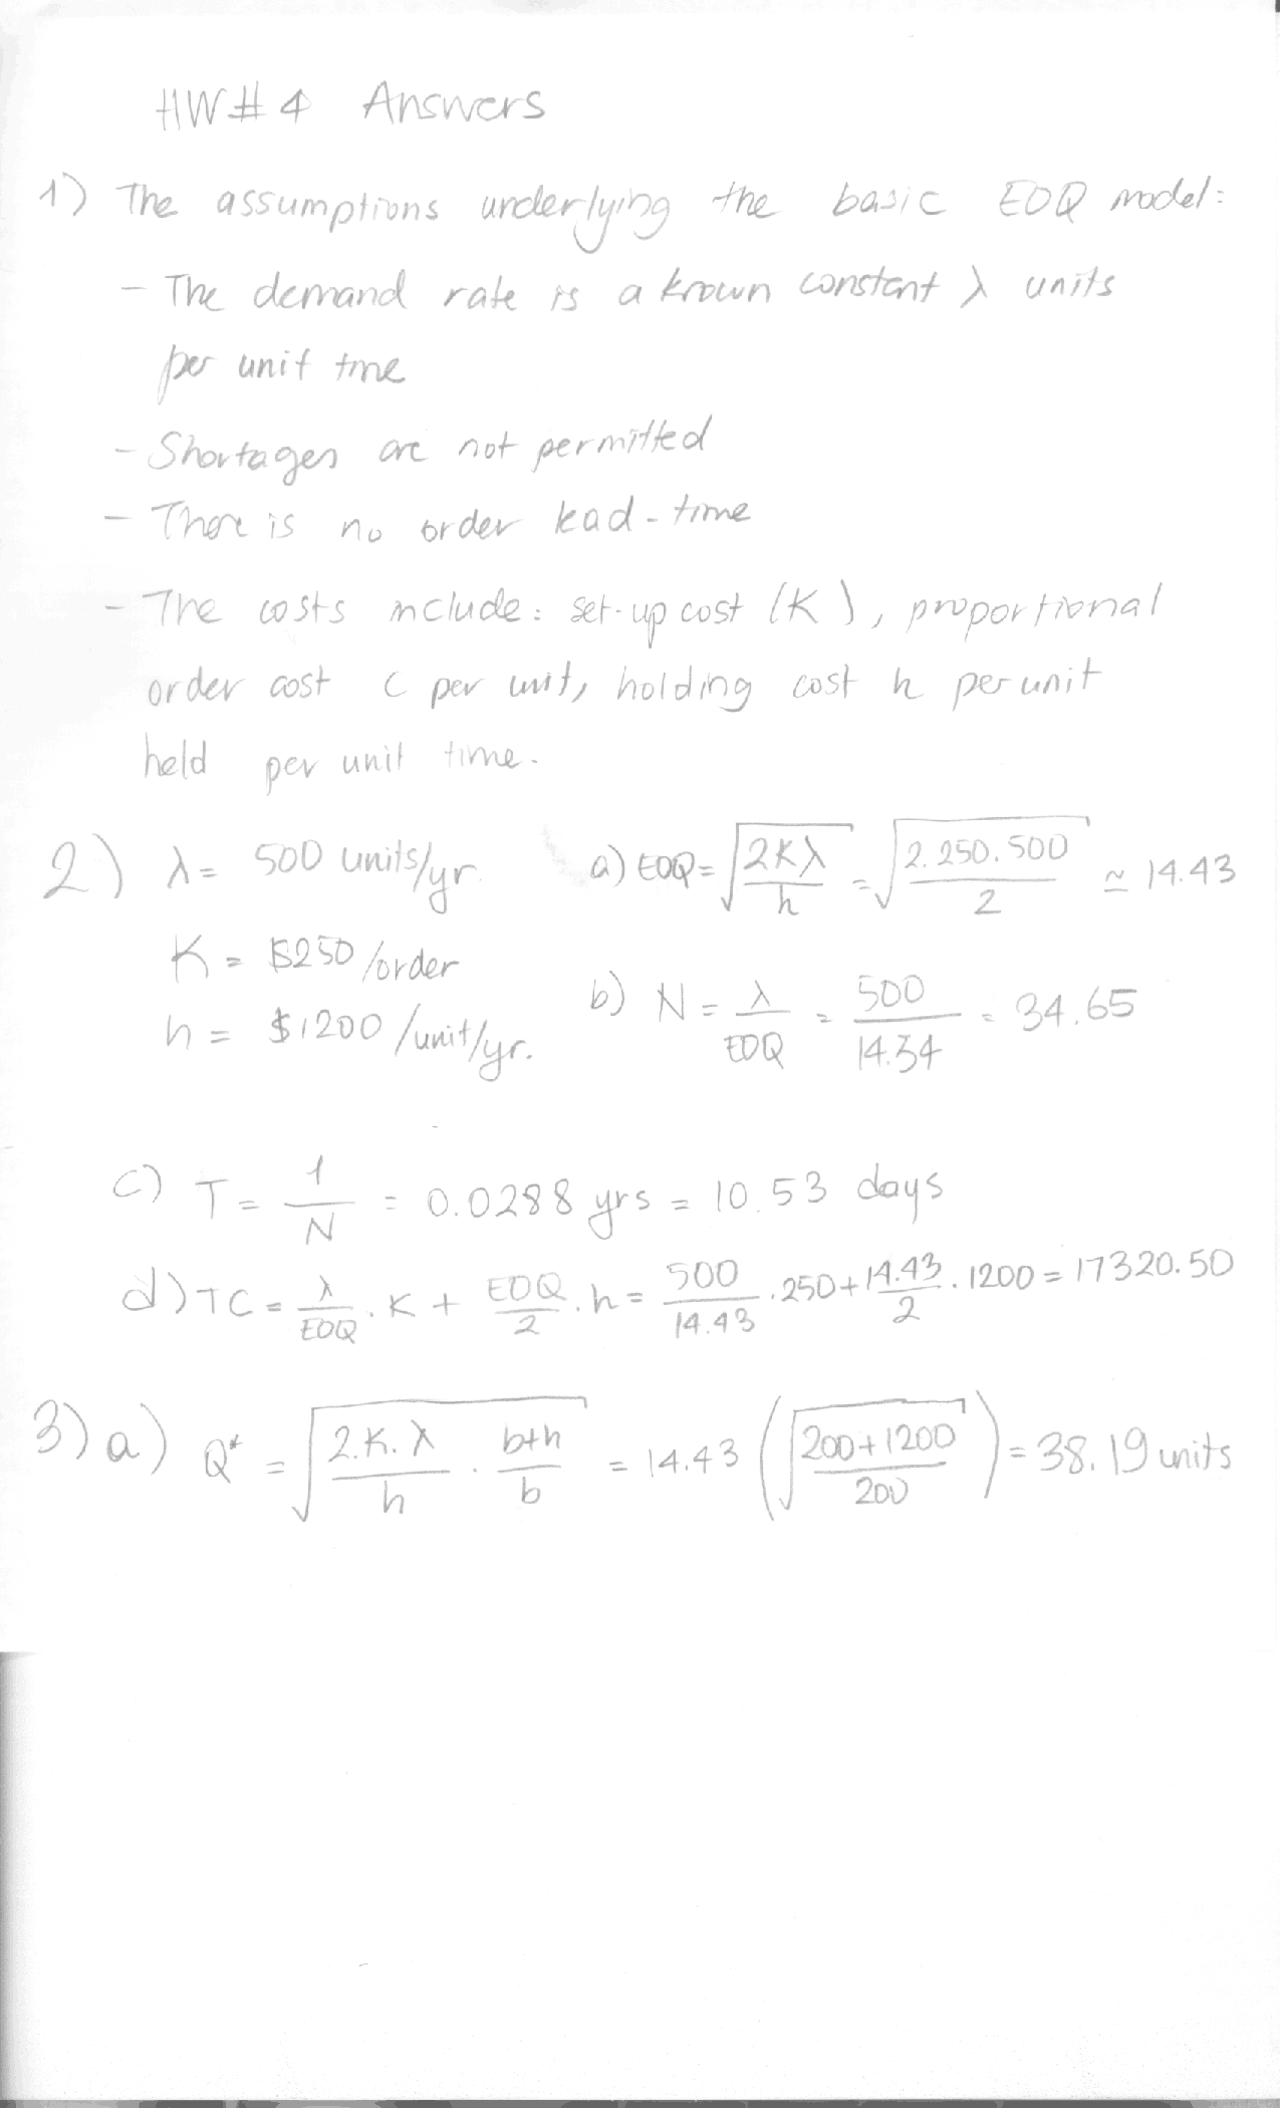 HW#4 Answers
1) The assumptions underlying the basic EOQ model:
- The demand rate is a known constant λ units
per unit time
- Shortages are not permitted
- There is no order lead-time
- The costs include: set-up cost (K), proportional
order cost c per unit, holding cost h per unit
held per unit time.
2) λ = 500 units/yr. a) EOQ = √(2Kλ/h) = √(2.250.500/2) ≃ 14.43
K = $250/order
h = $1200/unit/yr. b) N = λ/EOQ = 500/14.34 = 34.65
c) T = 1/N = 0.0288 yrs = 10.53 days
d) TC = λ/EOQ . K + EOQ/2 . h = 500/14.43 . 250 + 14.43/2 . 1200 = 17320.50
3) a) Q* = √(2.K.λ/h . b+h/b) = 14.43 (√(200+1200/200)) = 38.19 units